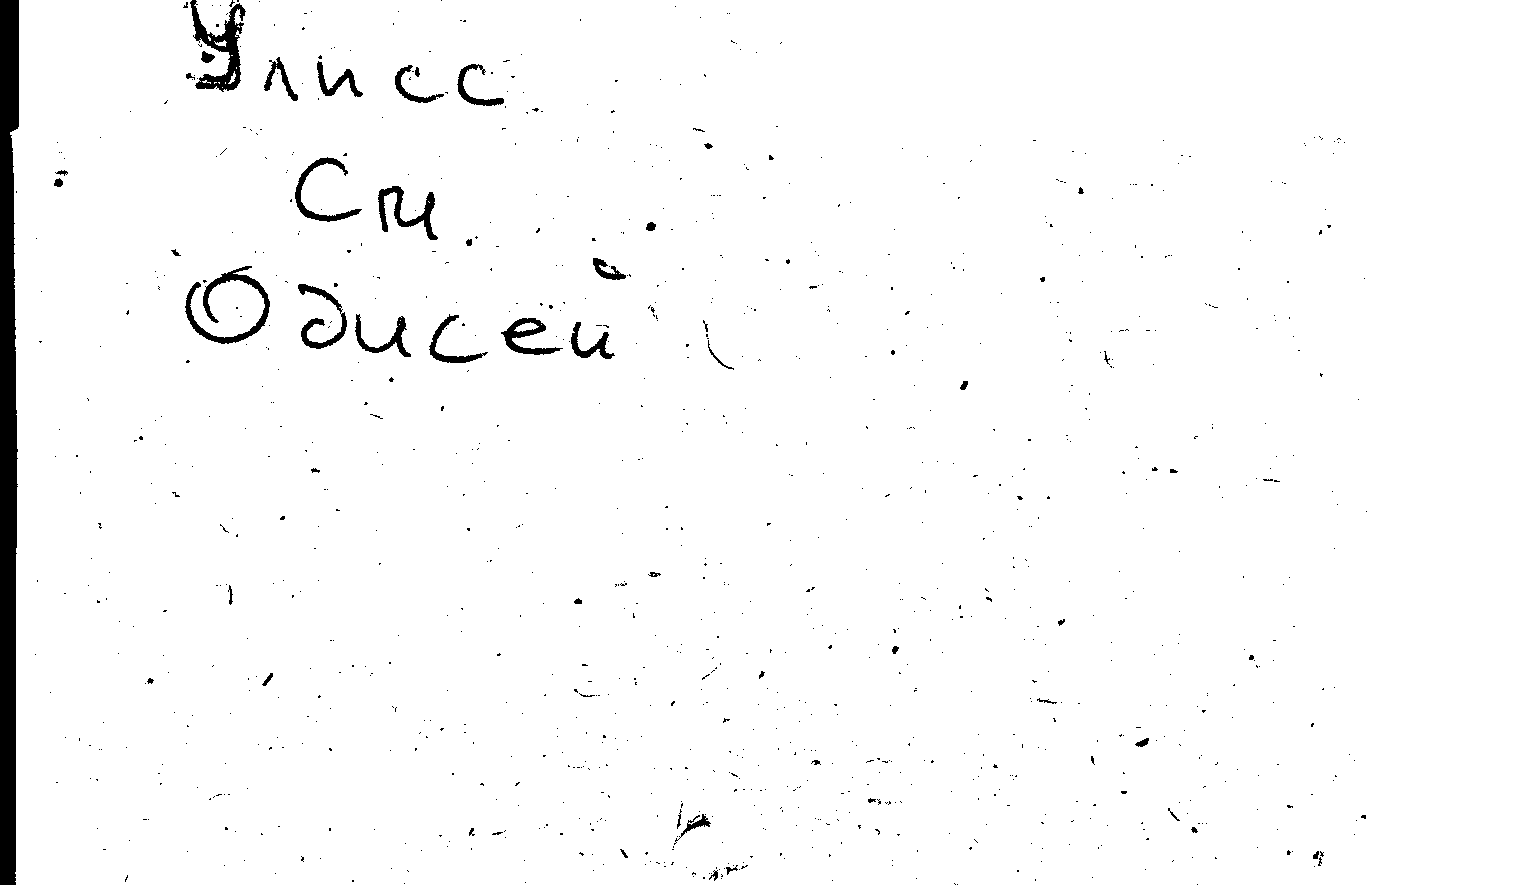 Улисс
См.
Одисей